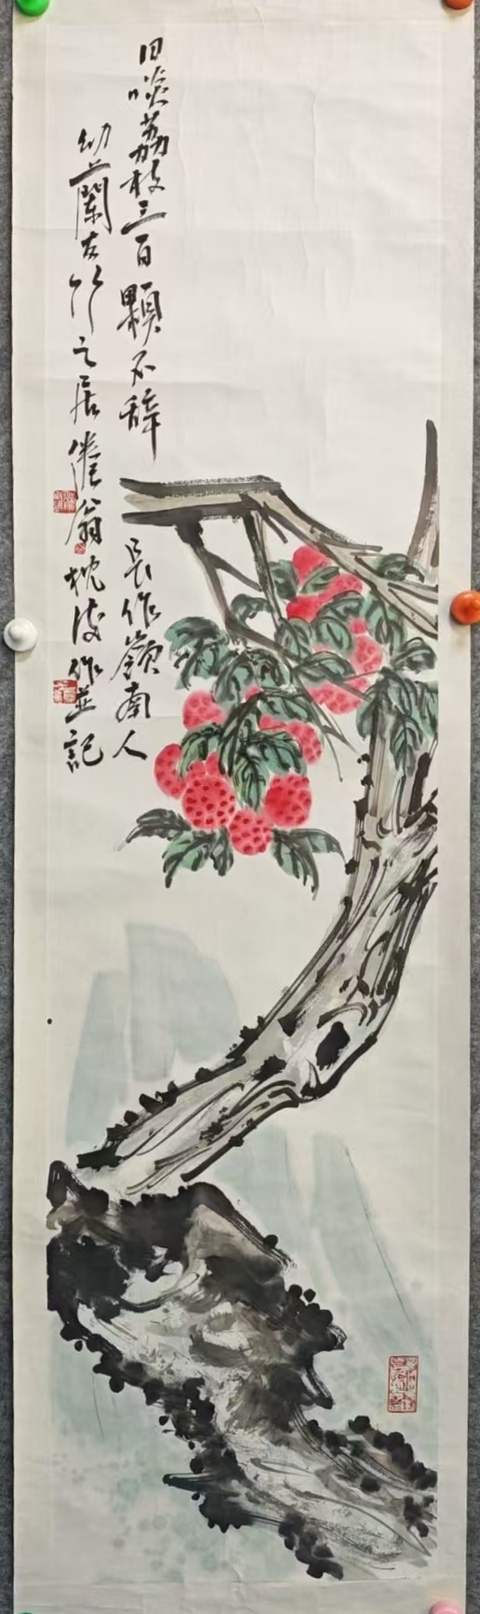 日啖荔枝三百顆不辭長作嶺南人
幼蘭左竹之居倦翁枕波作並記